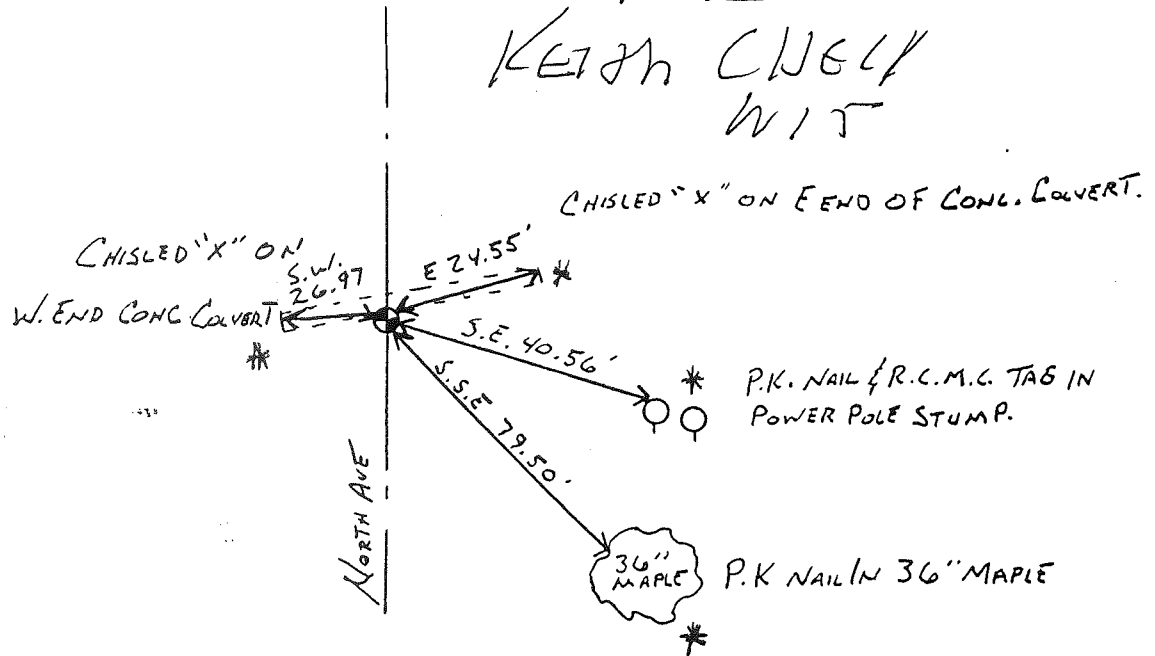 KEITH CHECK
WIT
CHISLED "X" ON E END OF CONC. COLVERT.
CHISLED "X" ON
W. END CONC COLVERT
S.W.
26.97
E 24.55'
S.E. 40.56'
P.K. NAIL & R.C.M.C. TAG IN
POWER POLE STUMP.
S.S.E 79.50'
NORTH AVE
36"
MAPLE
P.K NAIL IN 36" MAPLE